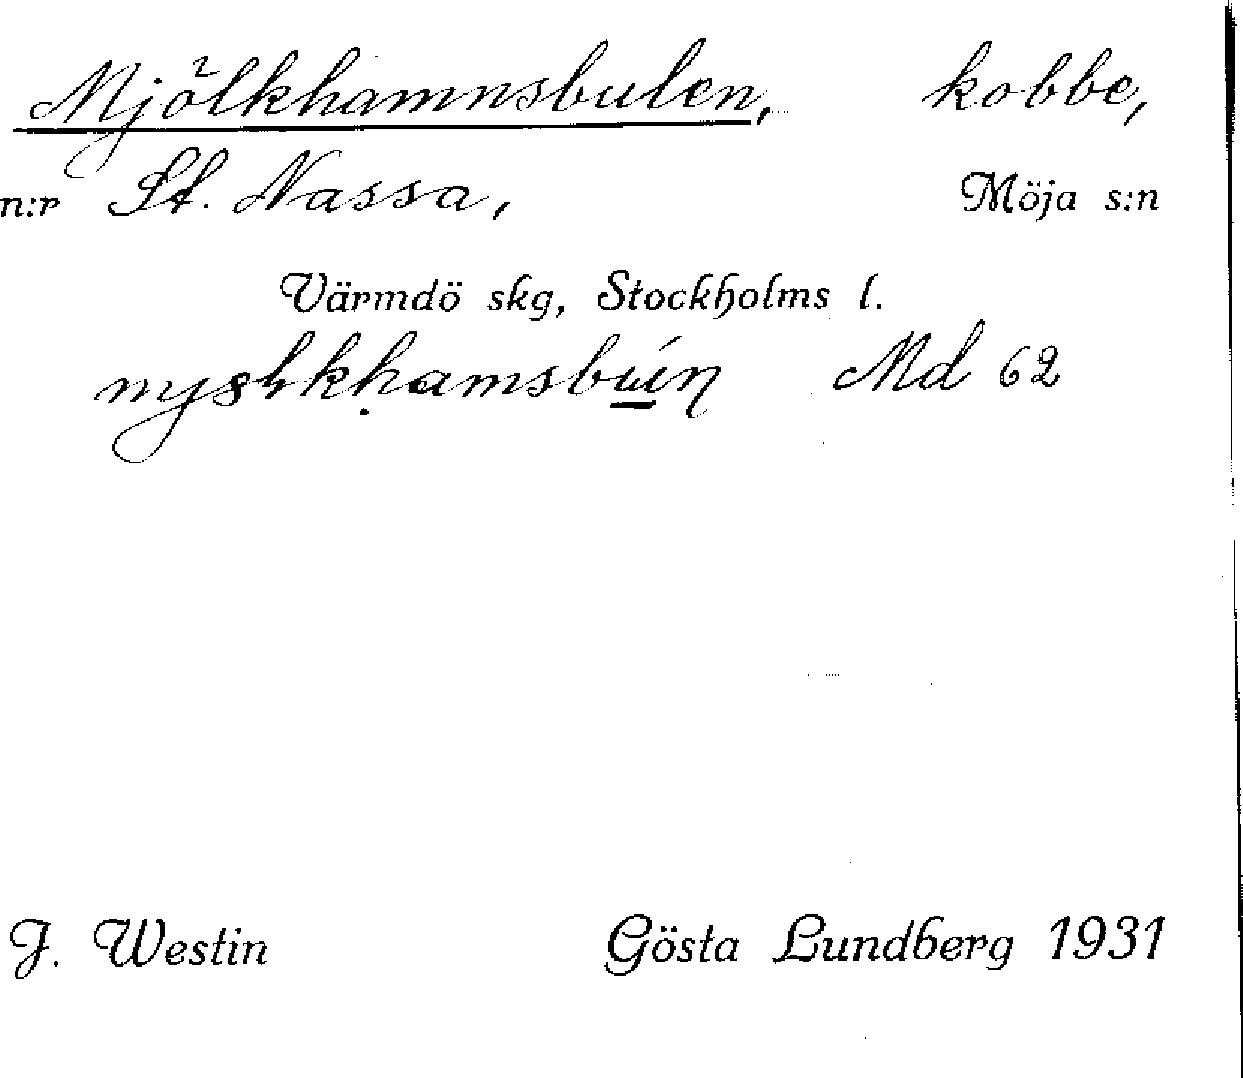 Mjölkhamnsbulen, kobbe,
n:r St. Nassa, Möja s:n
Värmdö skg, Stockholms l.
Md 62
J. Westin Gösta Lundberg 1931